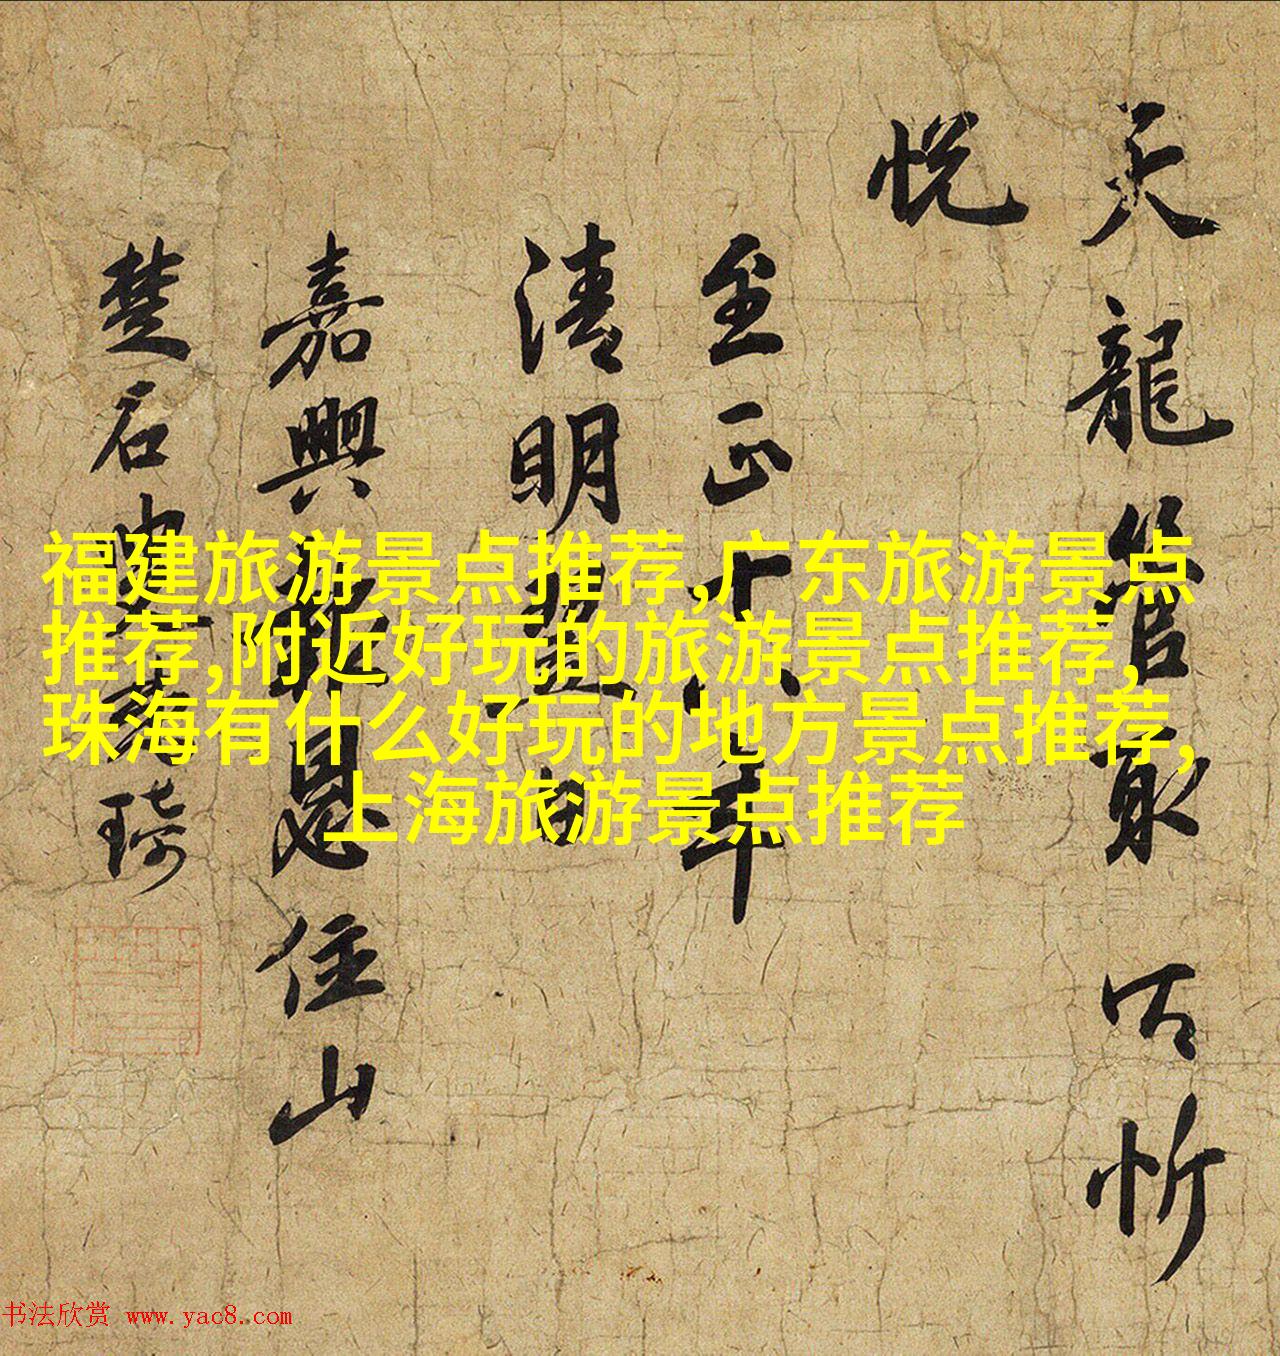 天龍管取皆忻
悅
至正十八年
清明
嘉興報恩住山
楚石
琦
福建旅游景点推荐,广东旅游景点
推荐,附近好玩的旅游景点推荐,
珠海有什么好玩的地方景点推荐,
上海旅游景点推荐
书法欣赏 www.yac8.com